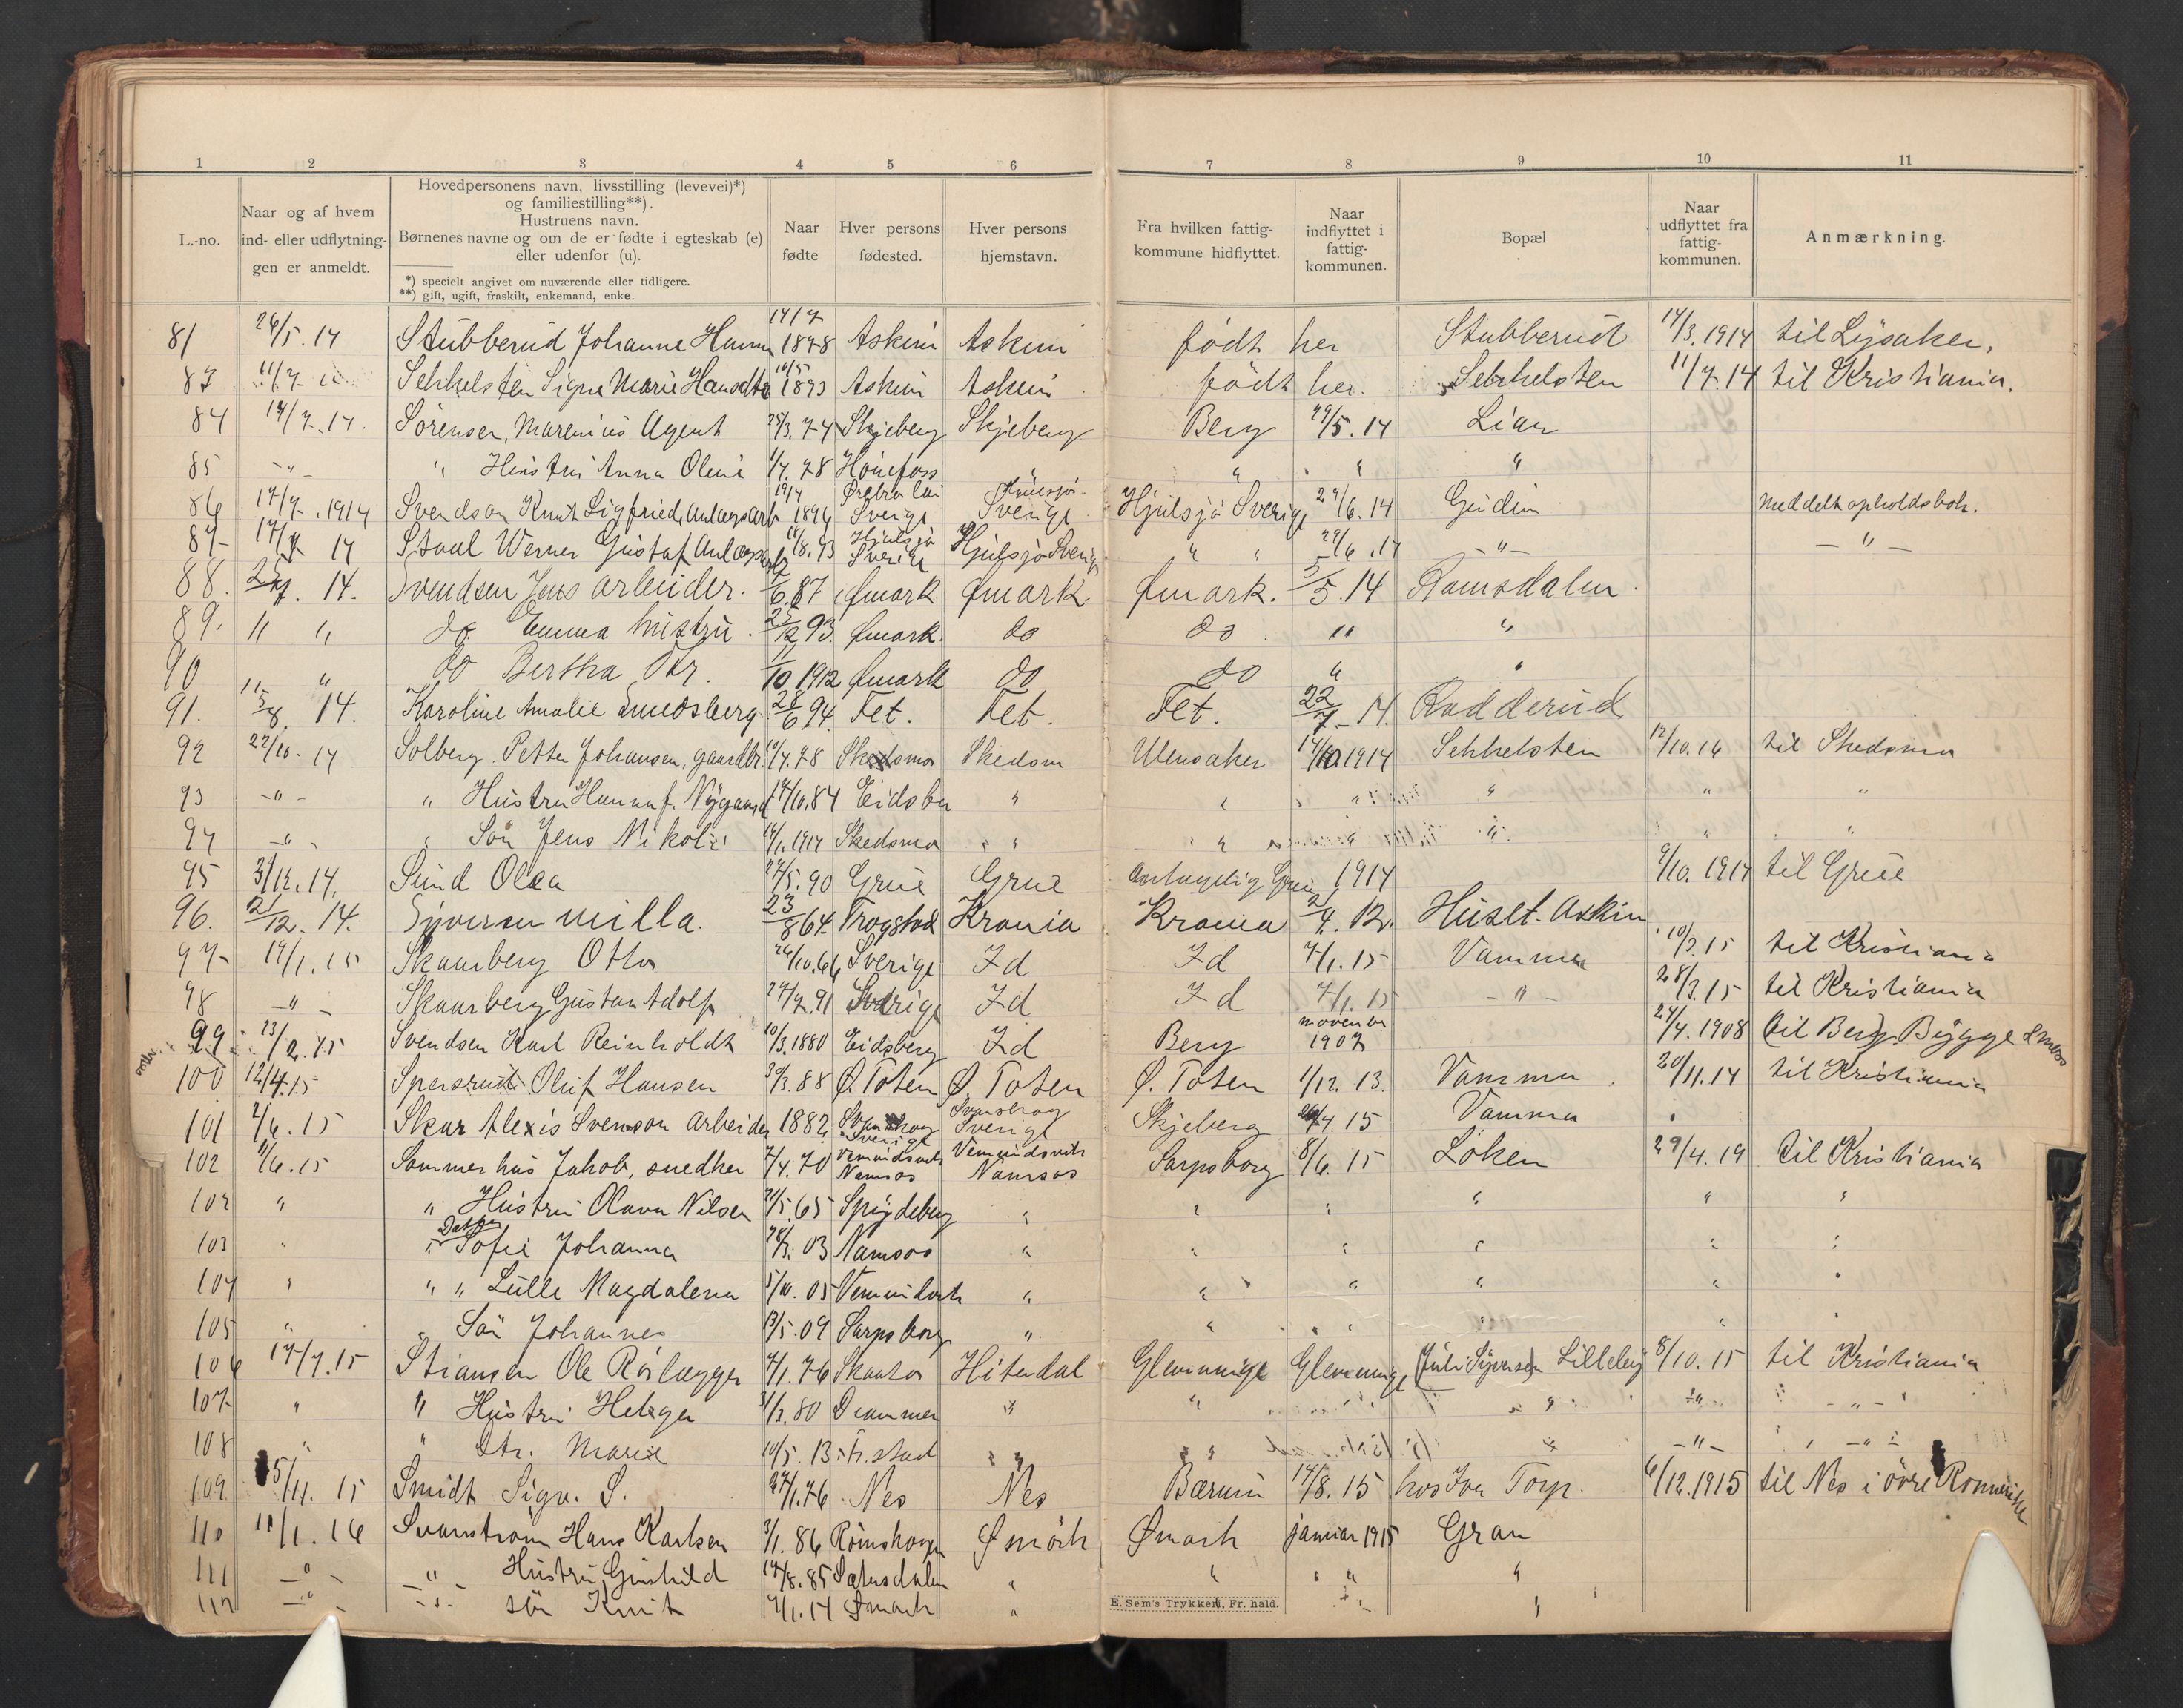 1 2 3 4 5 6 7 8 9 10 11
L.-no.
Naar og af hvem
ind- eller udflytnin-
gen er anmeldt.
Hovedpersonens navn, livsstilling (levevei)*)
og familiestilling**).
Hustruens navn.
Børnenes navne og om de er fødte i egteskab (e)
eller udenfor (u).
*) specielt angivet om nuværende eller tidligere.
**) gift, ugift, fraskilt, enkemand, enke.
Naar
fødte
Hver persons
fødested.
Hver persons
hjemstavn.
Fra hvilken fattig-
kommune hidflyttet.
Naar
indflyttet i
fattig-
kommunen.
Bopæl
Naar
udflyttet fra
fattig-
kommunen.
Anmærkning.
81 26/5.14 Stubberud Johanne 14/7 1878 Askim Askim født her Stubberud 14/3.1914 til Lysaker.
83 11/7 Sekkelsten Signe Marie 1893 Askim Askim født her. Sekkelsten 11/7.14 til Kristiania.
84 14/7.14. Sörensen, Marenius Agent 25/3.74 Skjeberg Skjeberg Berg 29/5.14 Lian
85 -"- " Hustru Anna Oline 1/7.78 Hönefoss " " "
86 17/7.1914 Svendson Knut Sigfried, Anlægsarb 19/7 1894 Sverige Sverige Hjulsjö Sverige 29/6.14 Gudim Meddelt opholdsbok.
87 17/7 14 Staal Werner Gustaf Anlægsarb 11/8.93 Hjulsjö Sverige Hjulsjö Sverige " " 29/6.14 -"- -"-
88. 14. Svendsen Jens arbeider. 87 Ømark Ømark Ømark. 5/5.14 Ramsdalen.
89. " " do Emma hustru. 25/12 93. Ømark. do do " "
90 " " do Bertha Dtr. 11/10 1912 Ømark do do " "
91. 5/8 14. Karoline Amalie Smedsberg. 28/6 94. Fet. Fet. Fet. 22/7-14. Rudderud
92 22/10.14 Solberg. Petter Johansen, gaardbr. 10/7.78 Skedsmo Skedsm Ulensaker 14/10.1914 Sekkelsten 12/10.16 til Skedsmo
93 -"- " Hustru Hanna f. Nygaard 14/10.84 Eidsber " " " " " "
94 -"- " Sön Jens Nikolai 14/1.1914 Skedsmo " " " " " " "
95 31/12.14, Sund Olea 27/5.90 Grue Grue antagelig Grue 1914 9/10.1914 til Grue
96. 21/12.14. Syversen Milla. 23/8 64. Trøgstad Krania Krania 2/4.12. Huset. Askim
97 19/1.15 Skaarberg Otto 26/10.66 Sverige Id Id 7/1.15 Vamma 10/3.15 til Kristiania
98 -"- Skaarberg Gustav Adolf 27/7.91 Sverige Id Id 7/1.15 -"- 28/3.15 til Kristiania
99 13/2.15 Svendsen Karl Reinholdt 10/3.1880 Eidsberg Id Berg november 1907 24/4.1908 til Berg. Bygge Smaas
100 12/4.15 Spersrud Oluf Hansen 30/3.88 Ø. Toten Ø. Toten Ø. Toten 1/12.13. Vamma. 20/11.14 til Kristiania
101 2/6.15 Skar Alexis Svenson Arbeider 1882 Sverige Svanskog Sverige Skjeberg 4.15 Vamma
102 11/6.15 Sommerhus Jakob, snedker 7/4.70 Vemundsvik Namsos Vemundsvik Namsos Sarpsborg 8/6.15 Löken 29/4.19 til Kristiania
102 " " Hustru Olava Nilsen 21/5.65 Spydeberg " " " " " "
103 " Datter Sofie Johanna 03 Namsos " " " " " "
104 " " " Lulle Magdalena 5/10.05 Vemundvik " " " " " "
105 " " Sön Johannes 13/5.09 Sarpsborg " " " " " "
106 17/7.15 Stiansen Ole Rörlægger 7/1.76 Skaatø Hiterdal Glemminge Glemminge Juli Syversen Lilleby 8/10.15 til Kristiania
107 " " Hustru Helga 3.80 Drammen " " " " -"-
108 " " Dtr. Marie 10/5.13 Fr.stad " " " -"- -"-
109 5/11.15 Smidt Sigv. S. 27/1.76 Nes Nes Bærum 14/8.15 hos Iver Torp. 6/12.1915 til Nes i övre Romerike
110 11/1.16 Svanström Hans Karlsen 3/1.86 Römskogen Ømark Ømark januar 1915 Gran
111 -"- " Hustru Gunhild 14/8.85 Sætersdalen " " " "
112 -"- -"- sön Knut 7/1.14 Ømark " "
E. Sem's Trykkeri, Fr. hald.